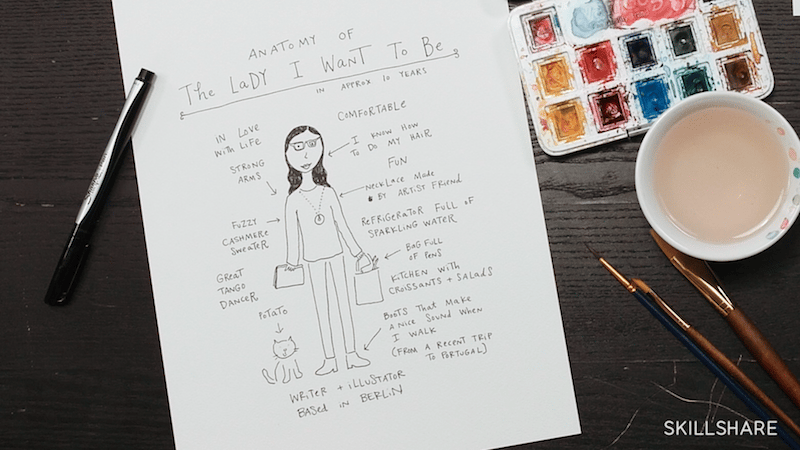 ANATOMY OF
The LaDY I WanT To Be
IN APPROX 10 YEARS
COMFORTABLE
IN LOVE
WITH LIFE
I KNOW HOW
TO DO MY HAIR
STRONG
ARMS
FUN
NECKLACE MADE
BY ARTIST FRIEND
FUZZY
CASHMERE
SWEATER
REFRIGERATOR FULL OF
SPARKLING WATER
BAG FULL
OF PENS
GREAT
TANGO
DANCER
KITCHEN WITH
CROISSANTS + SALADS
POTATO
BOOTS THAT MAKE
A NICE SOUND WHEN
I WALK
(FROM A RECENT TRIP
TO PORTUGAL)
WRITER + ILLUSTATOR
BASED IN BERLIN
SKILLSHARE